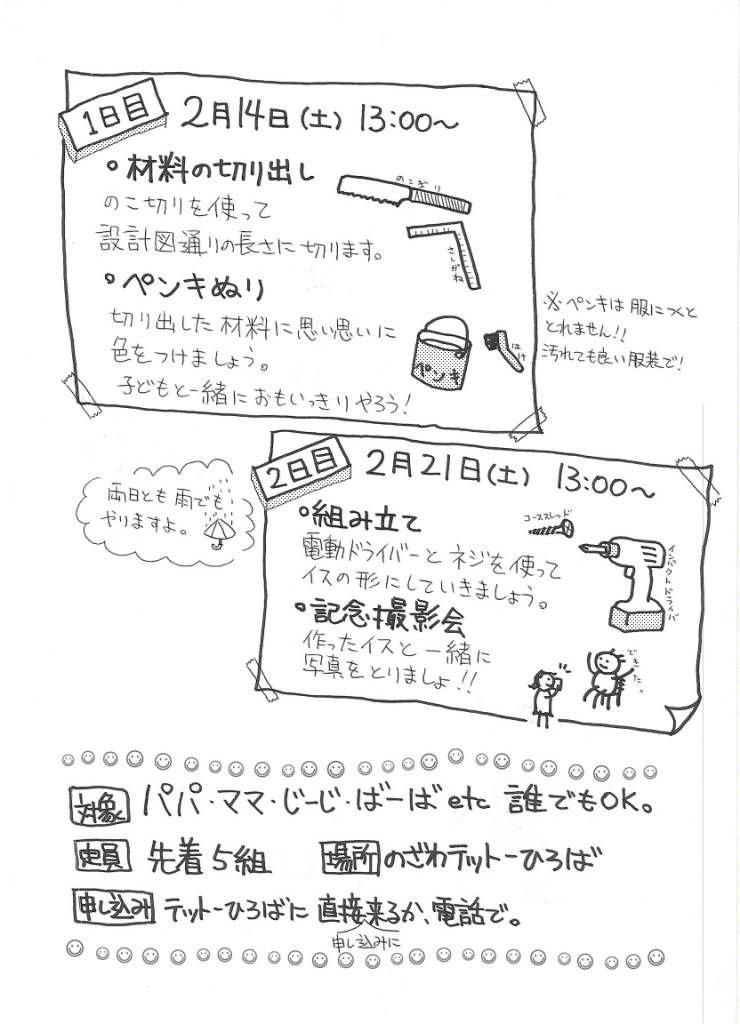 1日目 2月14日(土) 13:00〜
。材料の切り出し
のこぎり
のこ切りを使って
設計図通りの長さに切ります。
さしがね
。ペンキぬり
切り出した材料に思い思いに
色をつけましょう。
子どもと一緒におもいっきりやろう!
ペンキ
はけ
※ペンキは服につくと
とれません!!
汚れても良い服装で!
2日目 2月21日(土) 13:00〜
両日とも雨でも
やりますよ。
。組み立て
コーススレッド
電動ドライバーとネジを使って
イスの形にしていきましょう。
インパクトドライバ
。記念撮影会
作ったイスと一緒に
写真をとりましょ!!
できた。
対象 パパ・ママ・じーじ・ばーばetc 誰でもOK。
定員 先着5組 場所 のざわテットーひろば
申し込み テットーひろばに直接来るか、電話で。
申し込みに